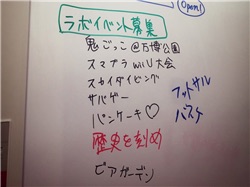 Open!
ラボイベント募集
鬼ごっこ@万博公園
スマブラ wii U 大会
スカイダイビング
サバゲー
パンケーキ♡
歴史を刻め
ビアガーデン
フットサル
バスケ